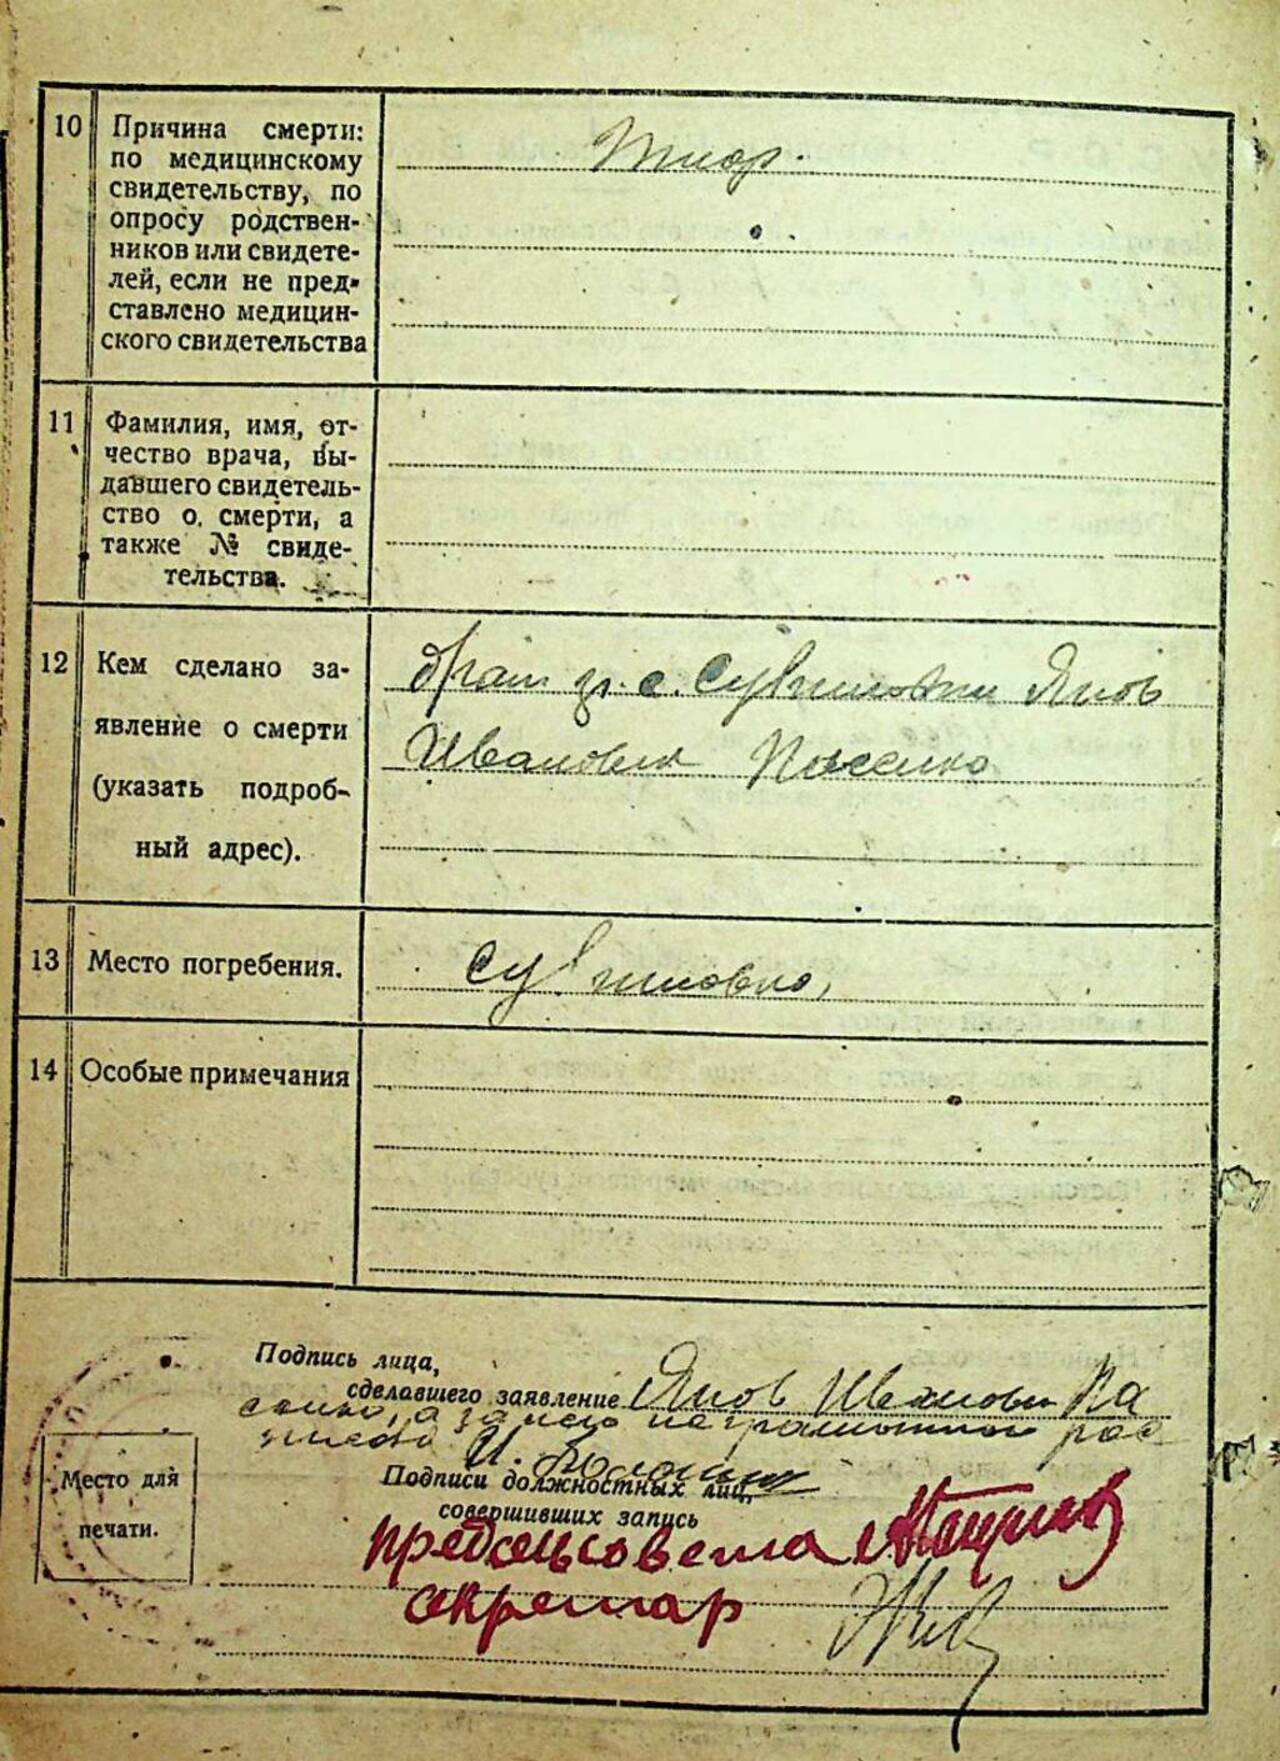 10 Причина смерти:
по медицинскому
свидетельству, по
опросу родствен-
ников или свидете-
лей, если не пред-
ставлено медицин-
ского свидетельства
11 Фамилия, имя, от-
чество врача, вы-
давшего свидетель-
ство о смерти, а
также № свиде-
тельства.
12 Кем сделано за-
явление о смерти
(указать подроб-
ный адрес).
брат гр. с. Яков
Иванович
13 Место погребения.
14 Особые примечания
Подпись лица,
сделавшего заявление Яков Иванович Па
а за него неграмотного рас
И.
Подписи должностных лиц,
совершивших запись
Место для
печати.
предсельсовета
секретар